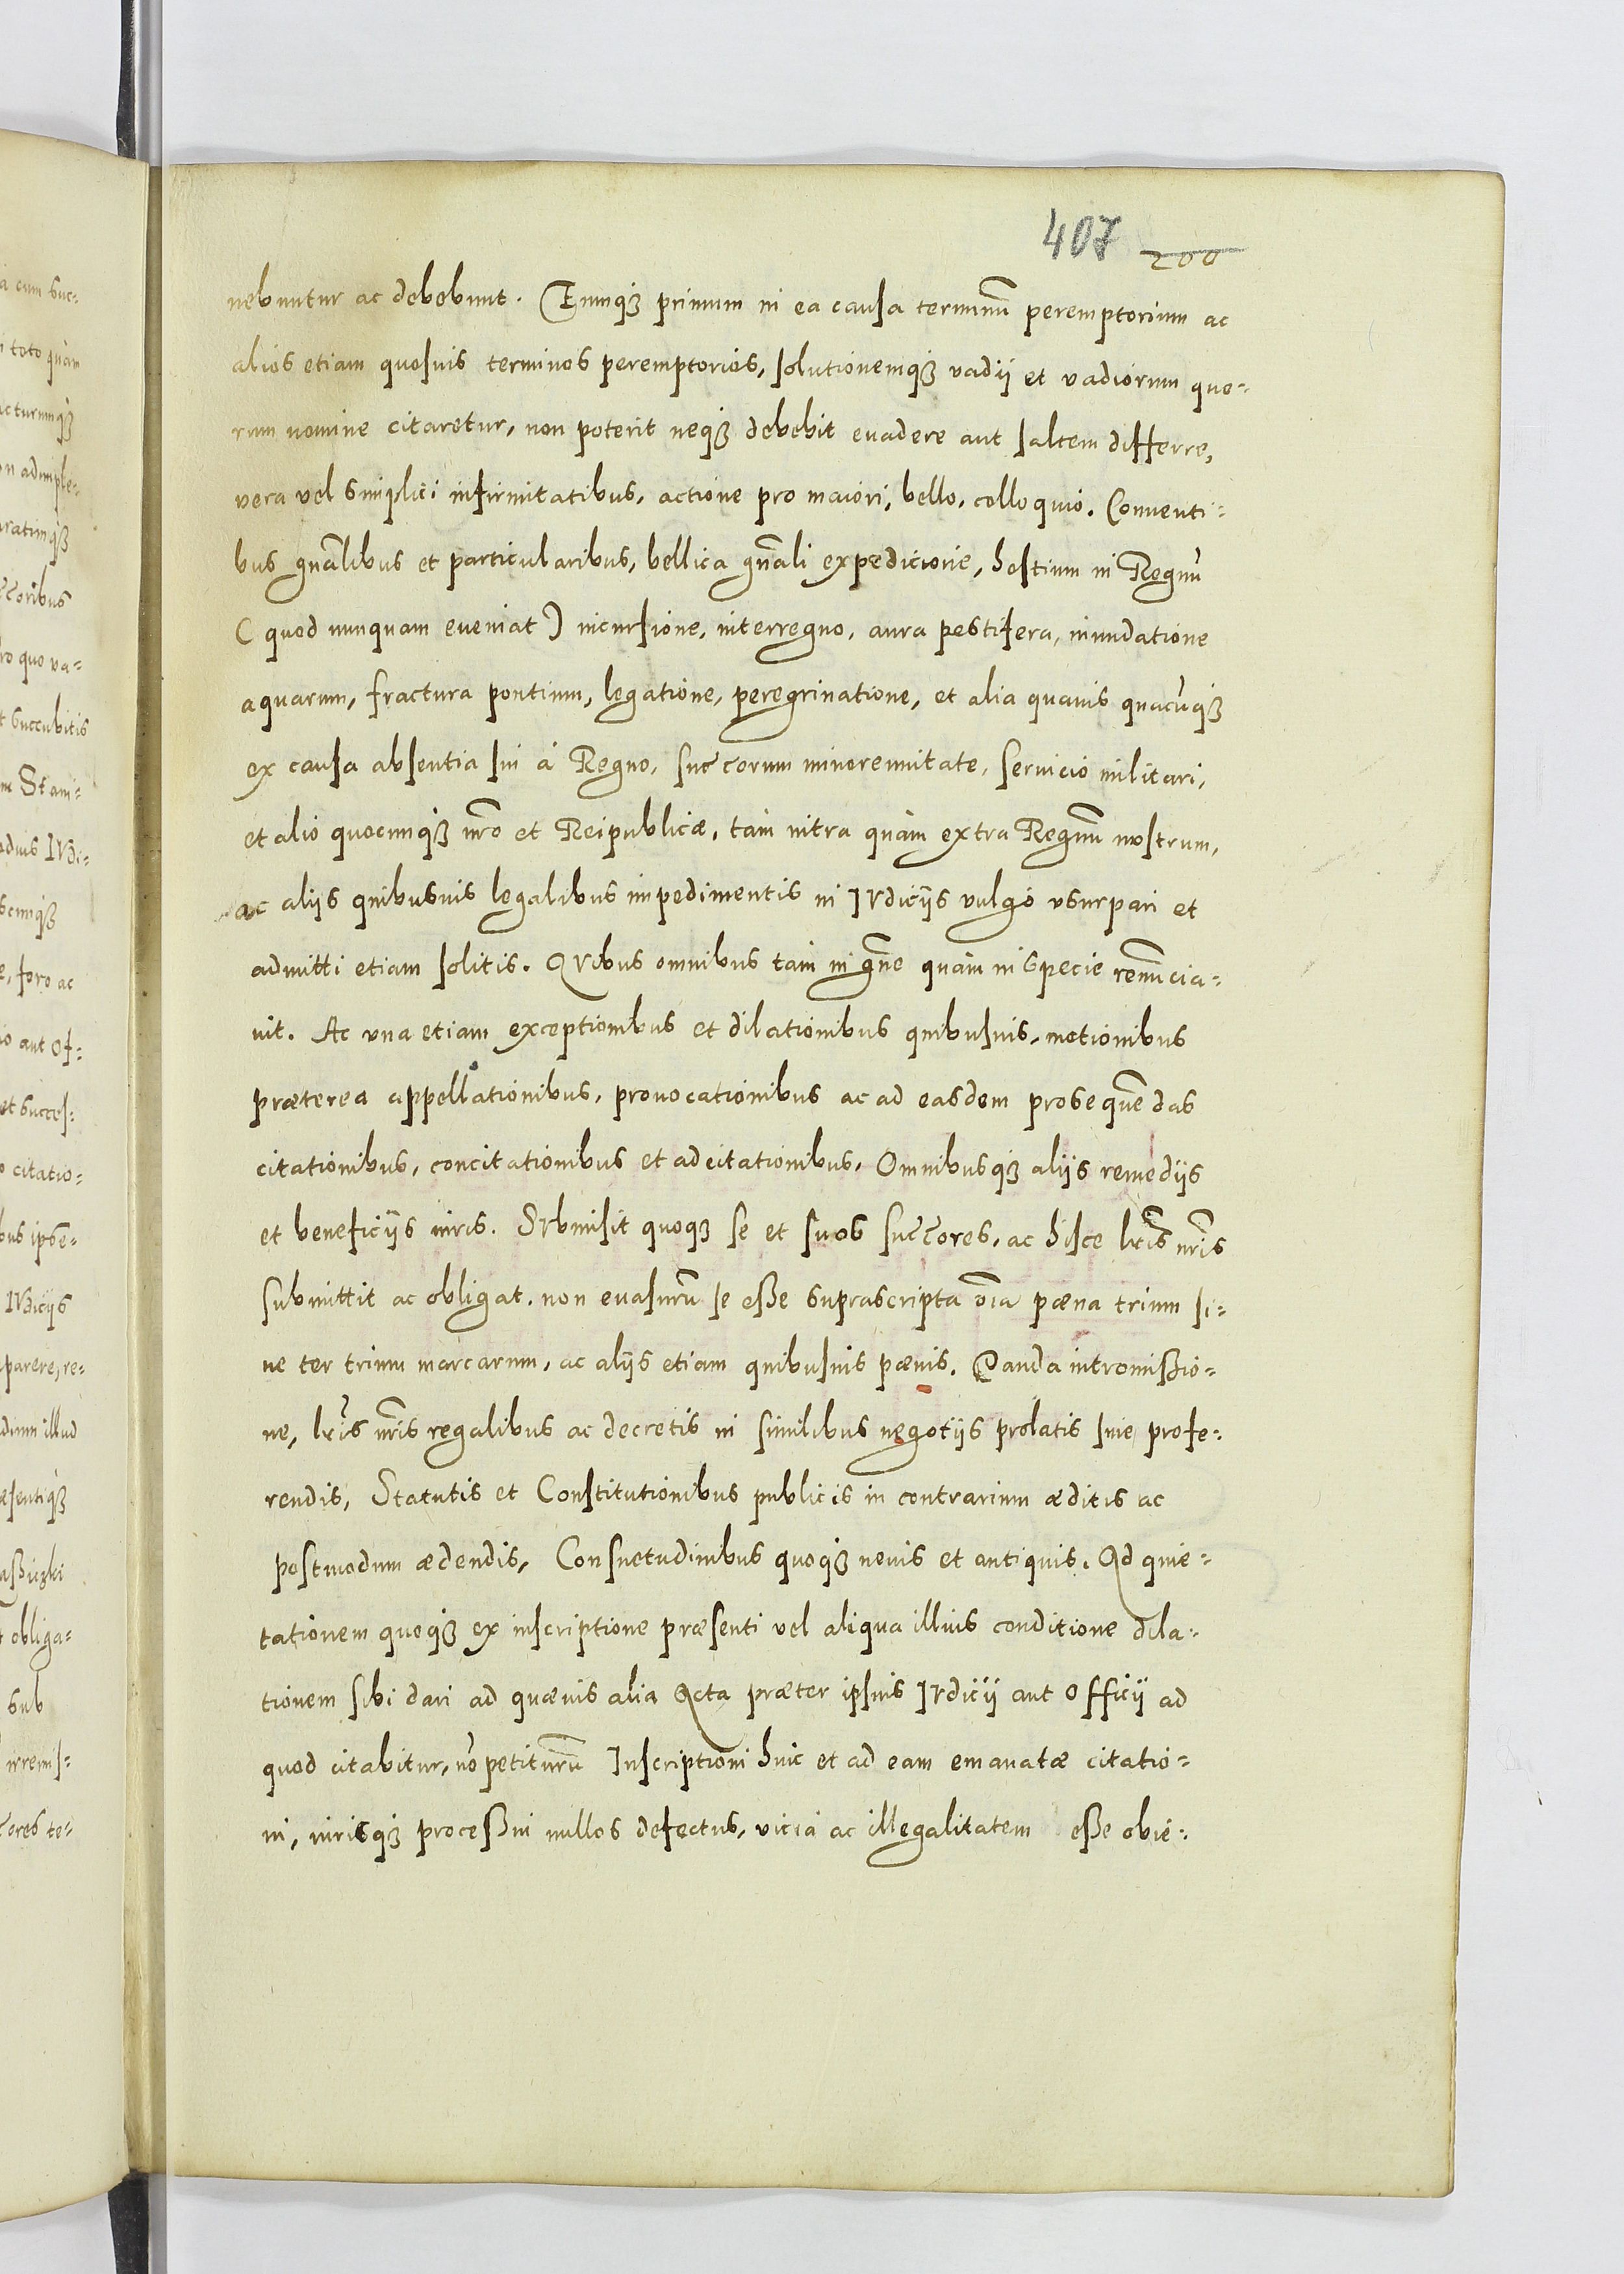 407 200
nebuntur ac debebunt. Eumq3 primum in ea causa terminũ peremptorium ac
alios etiam quosuis terminos peremptorios, solutionemq3 vadij et vadiorum quo=
rum nomine citaretur, non poterit neq3 debebit euadere aut saltem differre,
vera vel simplici infirmitatibus, actione pro maiori, bello, colloquio. Conuenti=
bus gñalibus et particularibus, bellica gñali expedicione, hostium in Regnũ
(quod nunquam eueniat) incursione, interregno, aura pestifera, inundatione
aquarum, fractura pontium, legatione, peregrinatione, et alia quauis quacũq3
ex causa absentia sui à Regno, succorum minorennitate, seruicio militari,
et alio quocunq3 nr̃o et Reipublicæ, tàm intra quàm extra Regnũ nostrum,
ac alijs quibusuis legalibus impedimentis in Iudicijs vulgo vsurpari et
admitti etiam solitis. Quibus omnibus tàm in gñe quàm in specie renũcia=
uit. Ac vna etiam exceptionibus et dilationibus quibusuis, motionibus
præterea appellationibus, prouocationibus ac ad easdem prosequẽdas
citationibus, concitationibus et adcitationibus, Omnibusq3 alijs remedijs
et beneficijs iuris. Submisit quoq3 se et suos succores, ac hisce lr̃is nr̃is
submittit ac obligat. non euasurũ se esße suprascripta õia pæna trium si=
ue ter trium marcarum, ac alijs etiam quibusuis pænis. Danda intromißio=
ne, lr̃is nr̃is regalibus ac decretis in similibus negotijs prolatis siue profe=
rendis, Statutis et Constitutionibus publicis in contrarium æditis ac
postmodum ædendis, Consuetudinibus quoq3 nouis et antiquis. Ad quie=
tationem quoq3 ex inscriptione præsenti vel aliqua illius conditione dila=
tionem sibi dari ad quæuis alia Acta præter ipsius Iudicij aut Officij ad
quod citabitur, nõ petiturũ Inscriptioni huic et ad eam emanatæ citatio=
ni, iurisq3 proceßui nullos defectus, vicia ac illegalitatem eße obie=